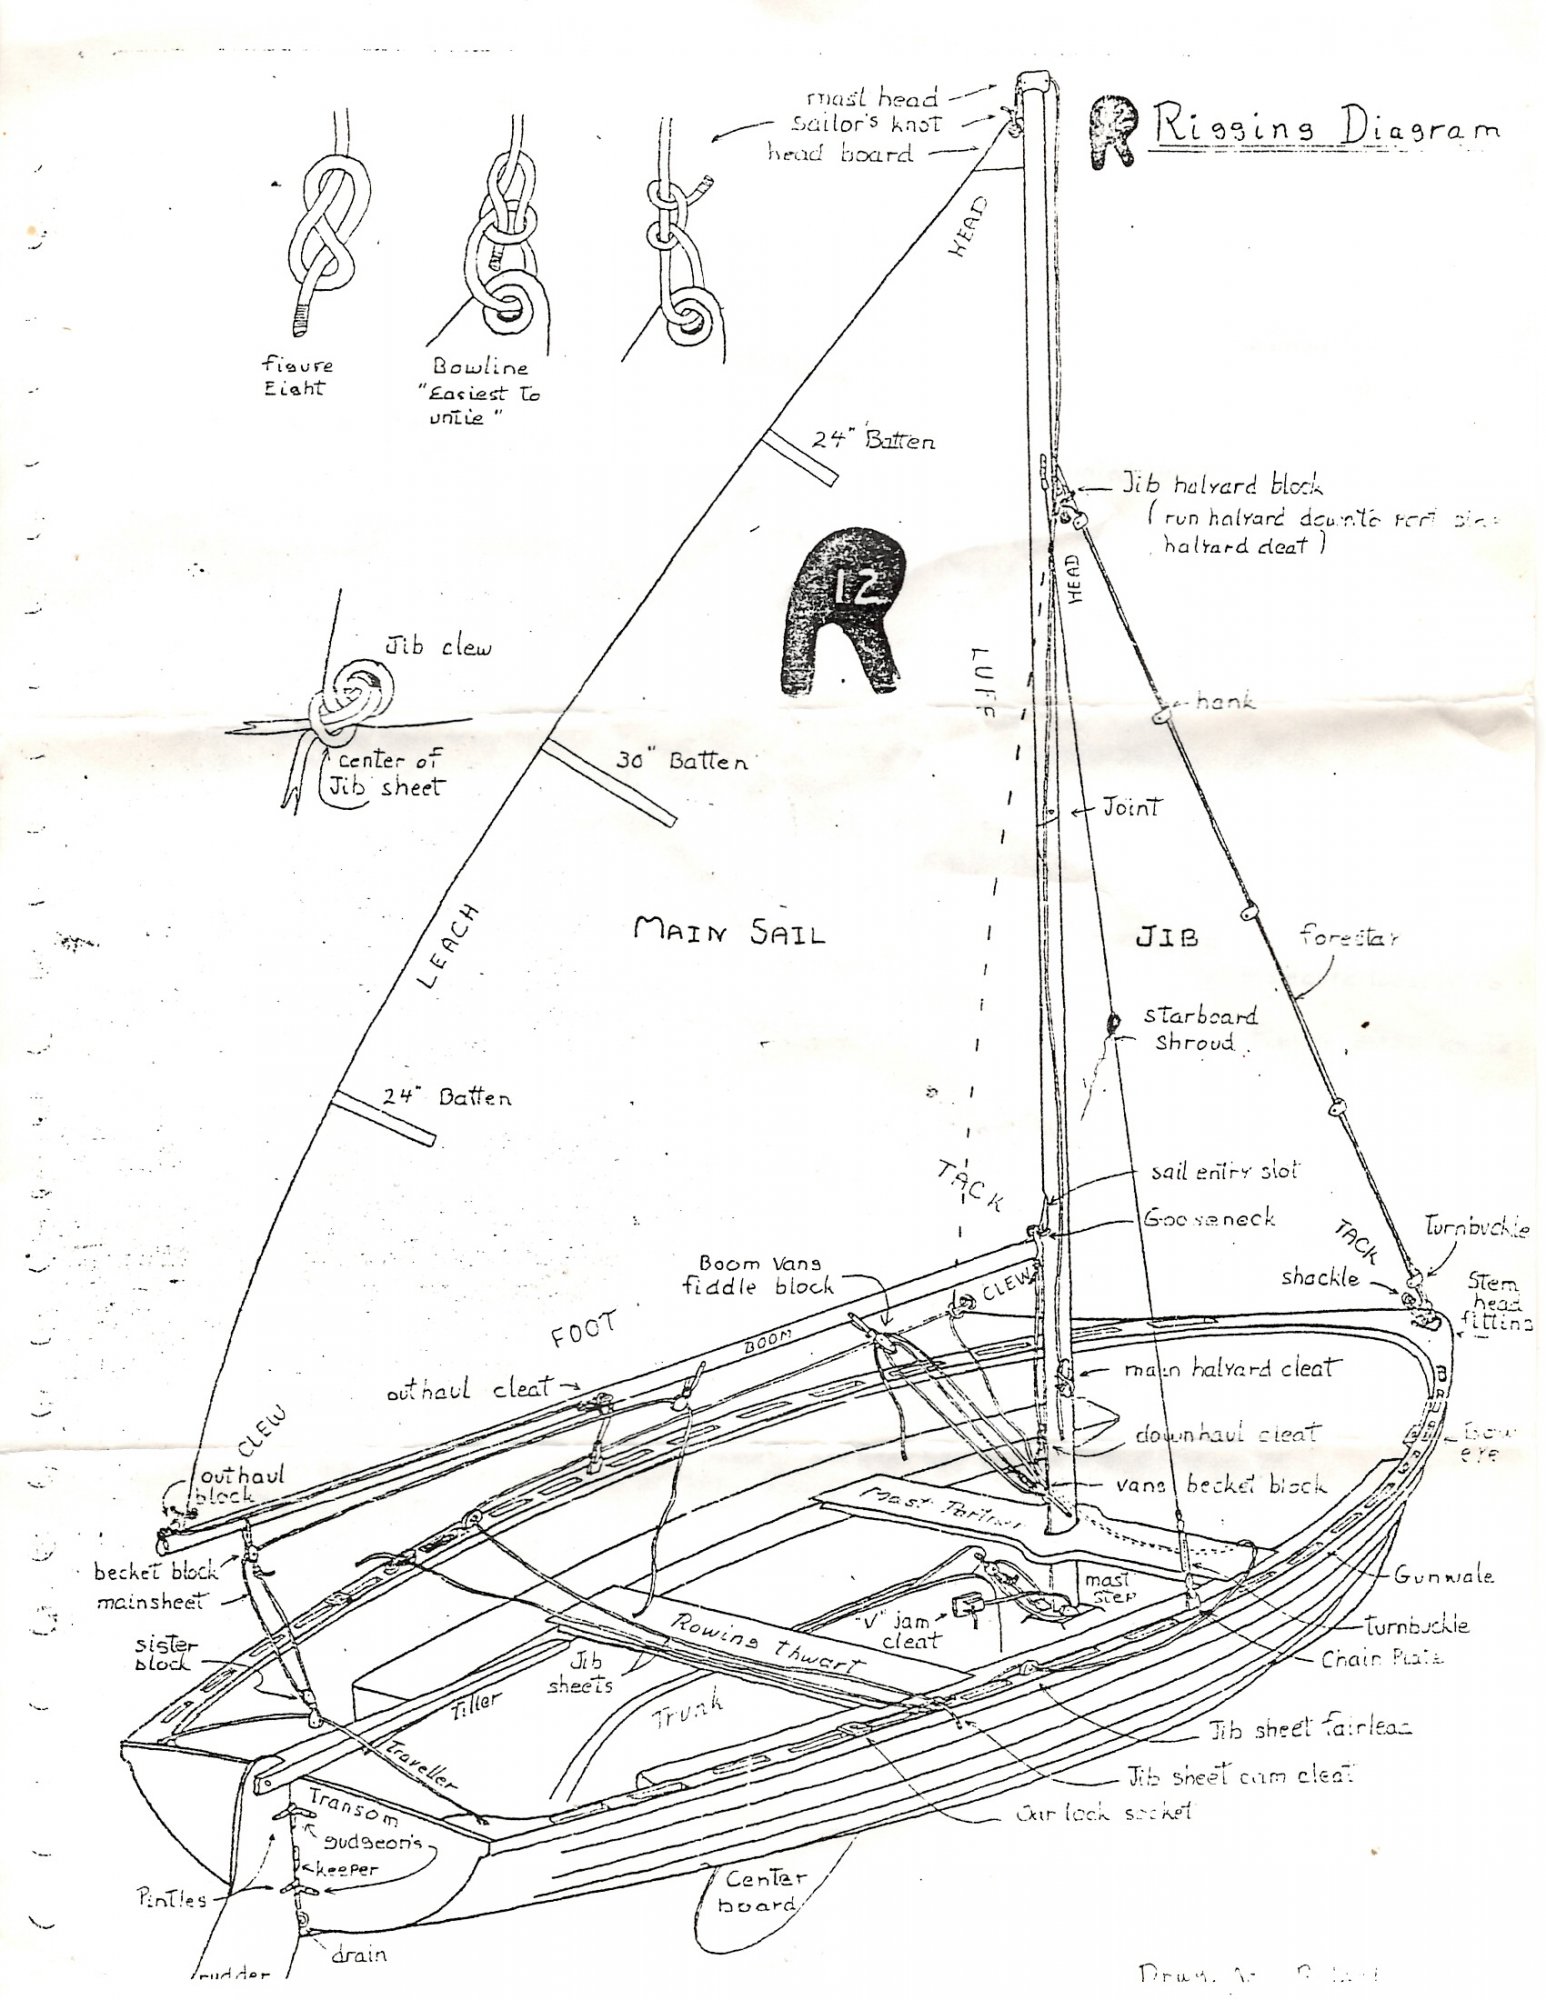 mast head
Sailor's knot
head board
R Rigging Diagram
HEAD
figure
Eight
Bowline
"Easiest to
untie"
24" Batten
Jib halyard block
(run halyard down to port
halyard cleat)
HEAD
12
LUFF
Jib clew
center of
Jib sheet
hank
30" Batten
Joint
LEACH
MAIN SAIL
JIB
forestay
starboard
shroud
24" Batten
TACK
sail entry slot
Gooseneck
TACK
Turnbuckle
Boom Vang
fiddle block
CLEW
shackle
Stem
head
fitting
FOOT
BOOM
outhaul cleat
main halyard cleat
CLEW
downhaul cleat
bow
eye
outhaul
block
vang becket block
Mast Partner
becket block
mainsheet
mast
step
Gunwale
"V" jam
cleat
Rowing thwart
sister
block
turnbuckle
Chain Plate
Jib
sheets
Tiller
Trunk
Jib sheet fairlead
Traveller
Jib sheet cam cleat
Oar lock socket
Transom
gudgeon's
keeper
Pintles
Center
board
drain
rudder